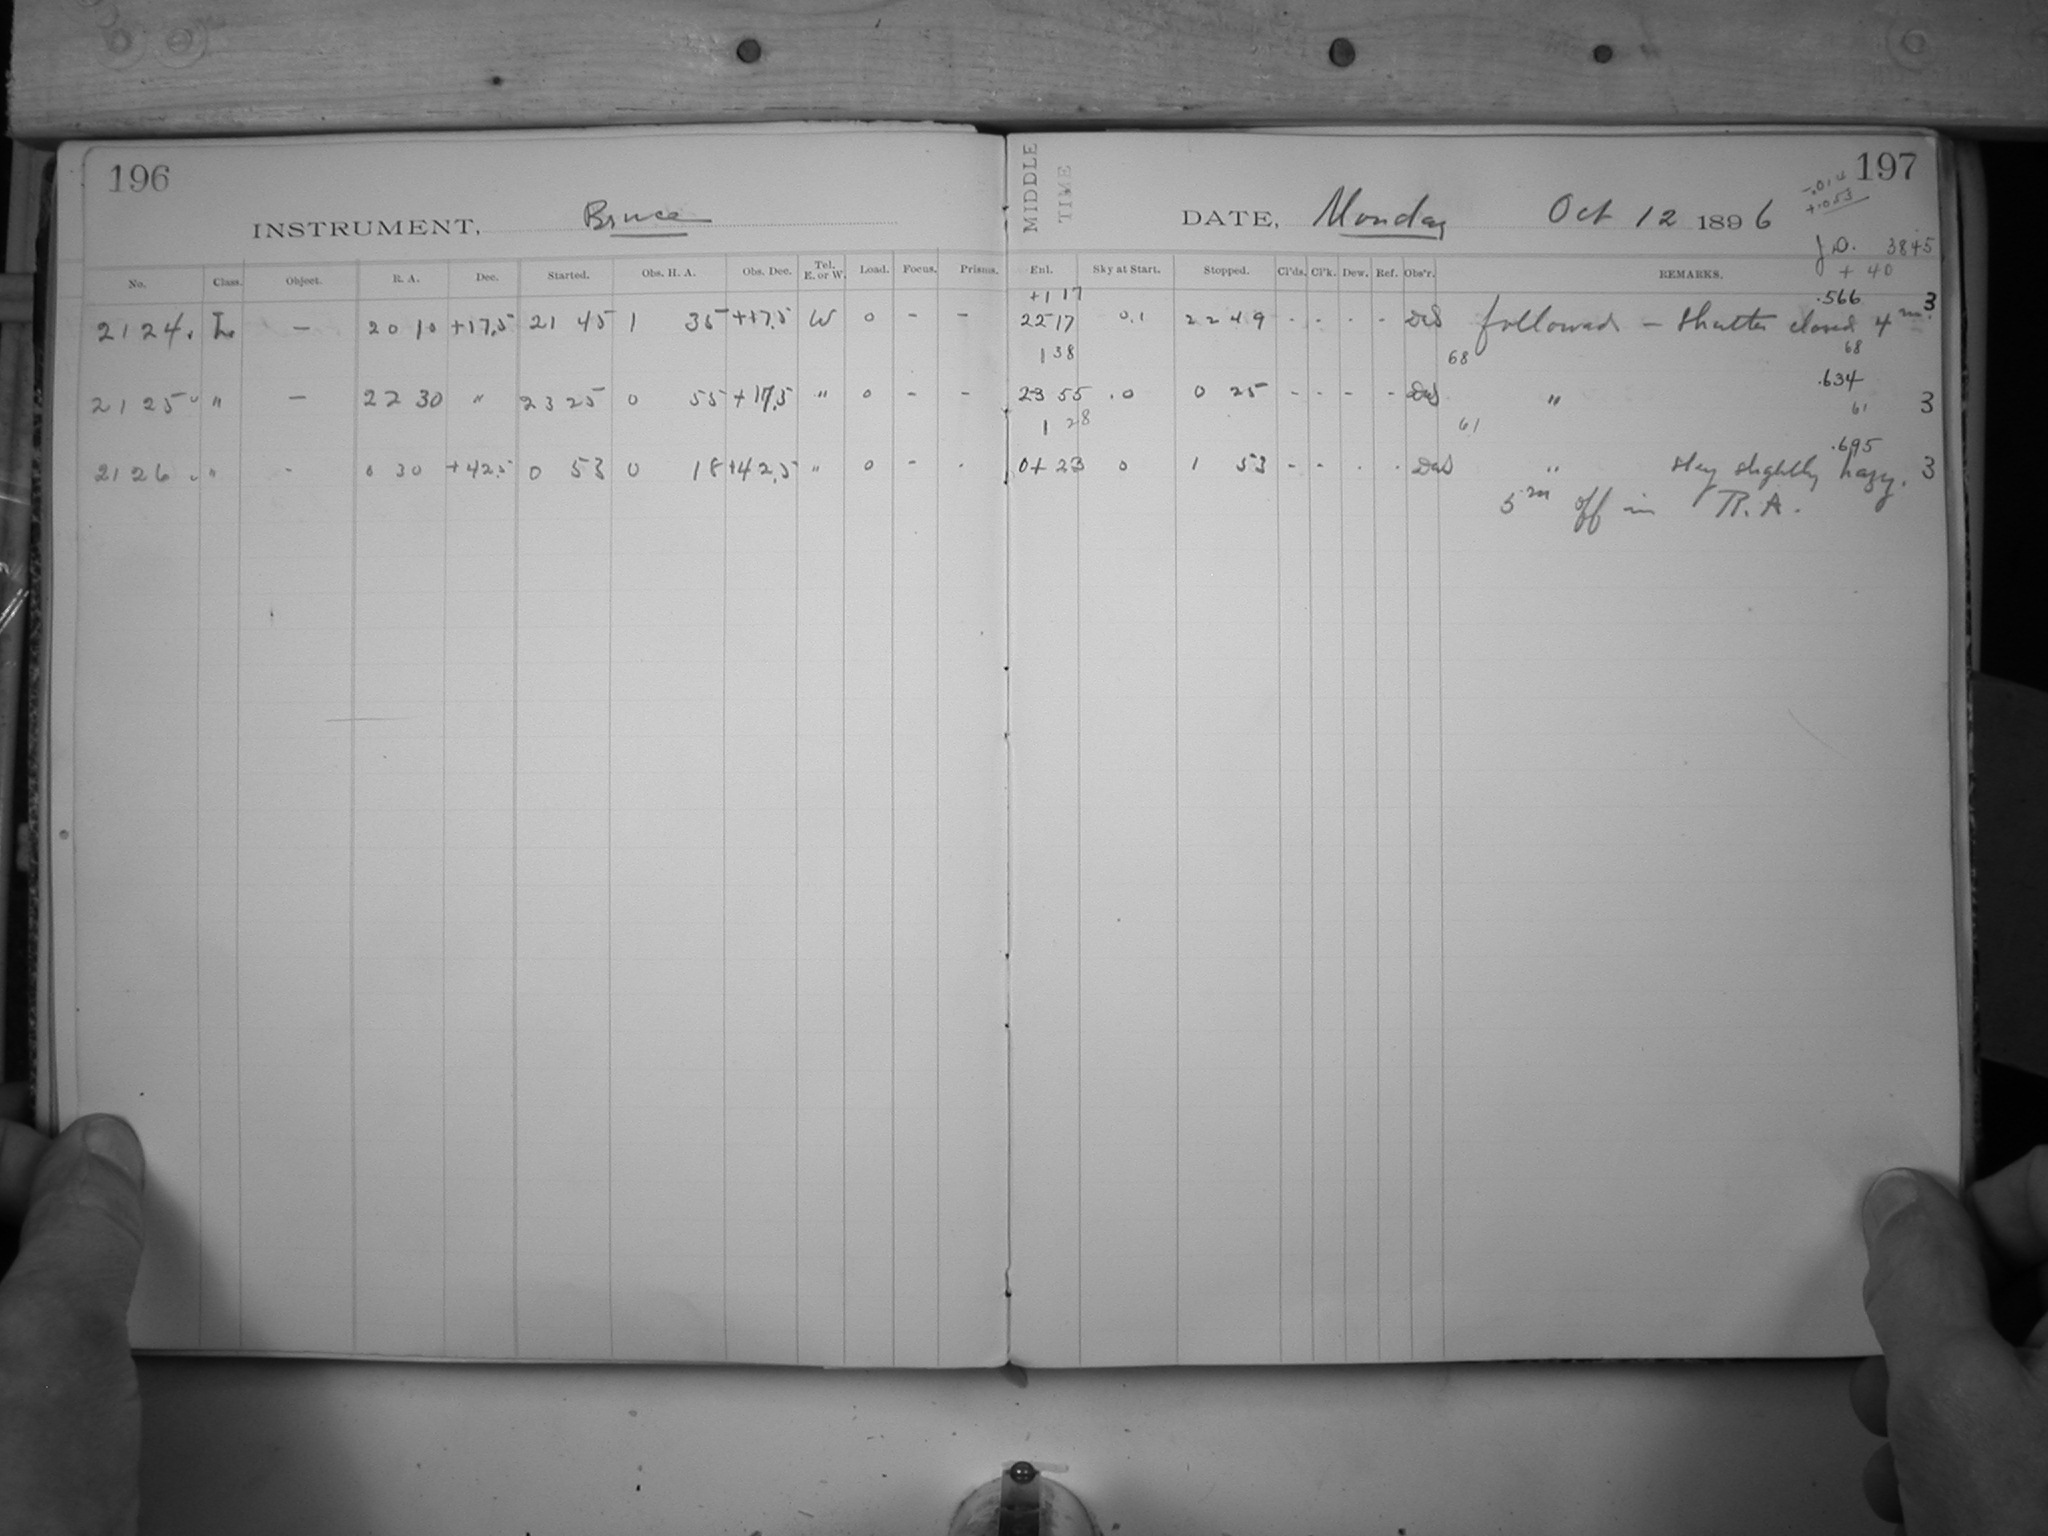 196
MIDDLE
TIME
197
-.014
+.053
INSTRUMENT, Bruce
DATE, Monday Oct 12 1896
J.D. 3845
+ 40
No. Class. Object. R. A. Dec. Started. Obs. H. A. Obs. Dec. Tel. E. or W. Load. Focus. Prisms. Enl. Sky at Start. Stopped. Cl'ds. Cl'k. Dew. Ref. Obs'r. REMARKS.
+1 17 .566
2124. L. — 20 10 +17.5 21 45 1 35 +17.5 W 0 - - 22 17 0.1 22 49 - - - - followed — Shutter closed 4m. 3
1 38 68 68
.634
2125 " — 22 30 " 23 25 0 55 +17.5 " 0 - - 23 55 .0 0 25 - - - - " 3
1 28 61 61
.695
2126 " - 0 30 +42.5 0 53 0 18 +42.5 " 0 - . 0+ 23 0 1 53 - - . . " sky slightly hazy. 3
5m off in R.A.